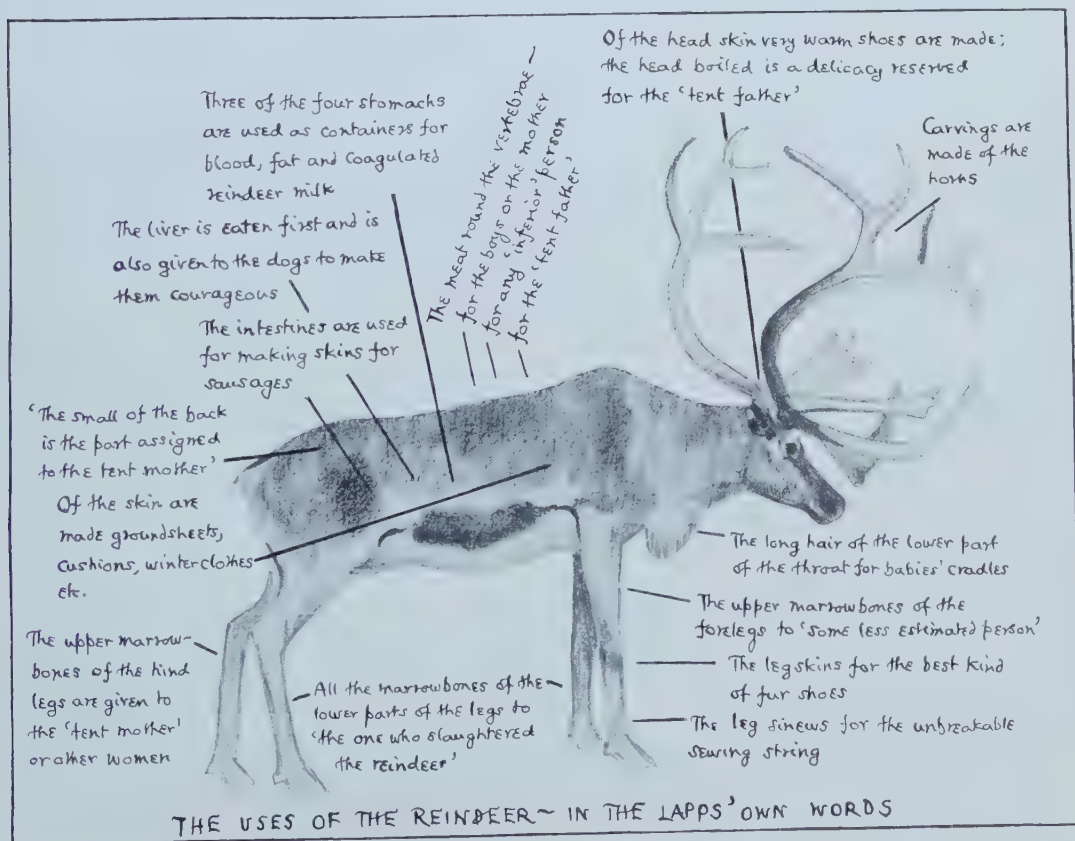 Of the head skin very warm shoes are made;
the head boiled is a delicacy reserved
for the 'tent father'
Three of the four stomachs
are used as containers for
blood, fat and coagulated
reindeer milk
The meat round the vertebrae ~
for the boys or the mother
for any 'inferior' person
for the 'tent father'
Carvings are
made of the
horns
The liver is eaten first and is
also given to the dogs to make
them courageous
The intestines are used
for making skins for
sausages
'The small of the back
is the part assigned
to the tent mother'
Of the skin are
made groundsheets,
cushions, winter clothes
etc.
The long hair of the lower part
of the throat for babies' cradles
The upper marrowbones of the
forelegs to 'some less estimated person'
The legskins for the best kind
of fur shoes
The leg sinews for the unbreakable
sewing string
The upper marrow-
bones of the hind
legs are given to
the 'tent mother'
or other women
All the marrowbones of the
lower parts of the legs to
'the one who slaughtered
the reindeer'
THE USES OF THE REINDEER ~ IN THE LAPPS' OWN WORDS